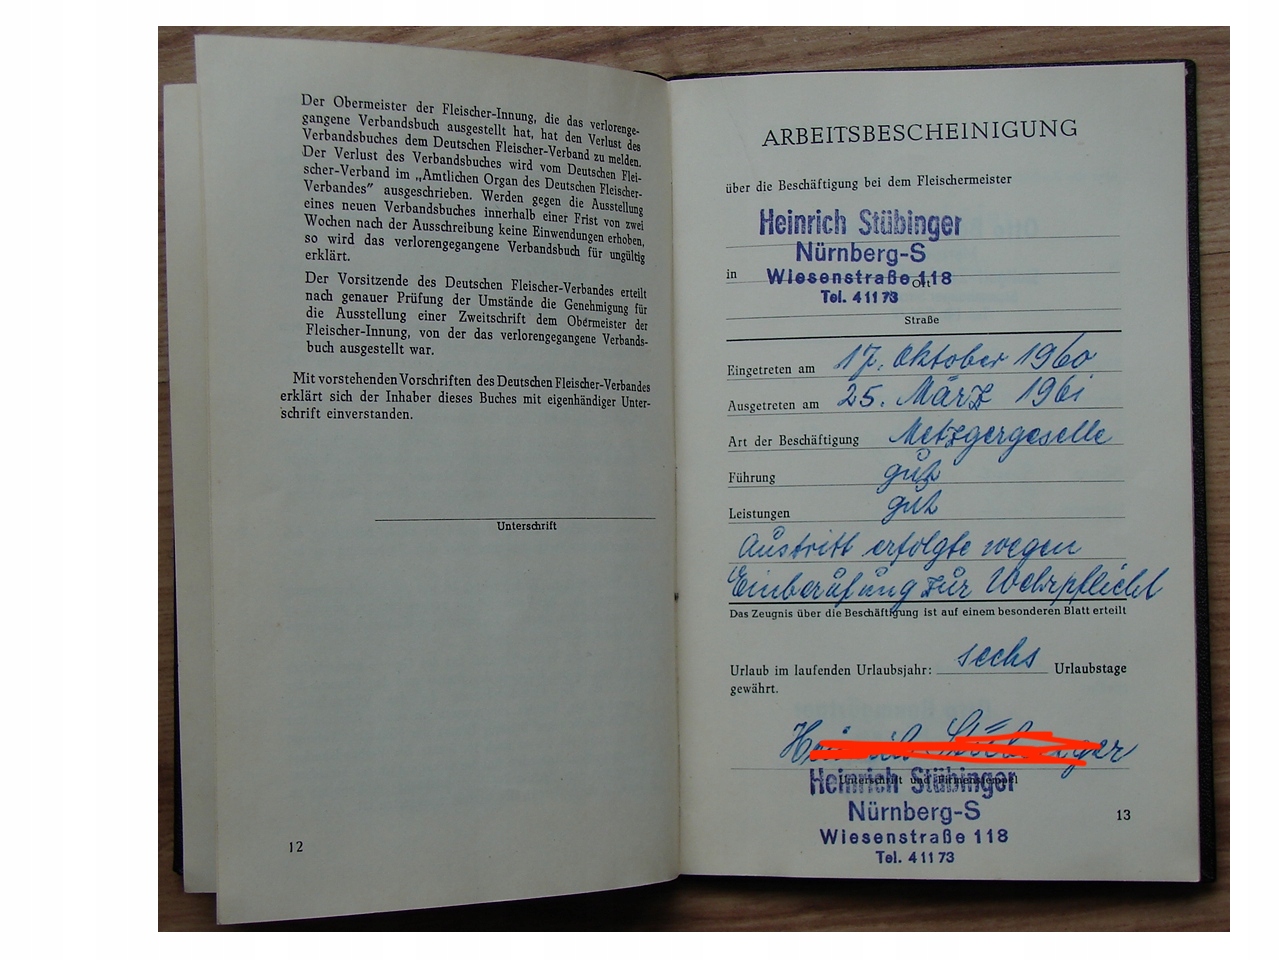 Der Obermeister der Fleischer-Innung, die das verlorenge-
gangene Verbandsbuch ausgestellt hat, hat den Verlust des
Verbandsbuches dem Deutschen Fleischer-Verband zu melden.
Der Verlust des Verbandsbuches wird vom Deutschen Flei-
scher-Verband im „Amtlichen Organ des Deutschen Fleischer-
Verbandes" ausgeschrieben. Werden gegen die Ausstellung
eines neuen Verbandsbuches innerhalb einer Frist von zwei
Wochen nach der Ausschreibung keine Einwendungen erhoben,
so wird das verlorengegangene Verbandsbuch für ungültig
erklärt.
Der Vorsitzende des Deutschen Fleischer-Verbandes erteilt
nach genauer Prüfung der Umstände die Genehmigung für
die Ausstellung einer Zweitschrift dem Obermeister der
Fleischer-Innung, von der das verlorengegangene Verbands-
buch ausgestellt war.
Mit vorstehenden Vorschriften des Deutschen Fleischer-Verbandes
erklärt sich der Inhaber dieses Buches mit eigenhändiger Unter-
schrift einverstanden.
Unterschrift
12
ARBEITSBESCHEINIGUNG
über die Beschäftigung bei dem Fleischermeister
Heinrich Stübinger
Nürnberg-S
in Wiesenstraße 118
Ort
Tel. 41173
Straße
Eingetreten am 17. Oktober 1960
Ausgetreten am 25. März 1961
Art der Beschäftigung Metzgergeselle
Führung gut
Leistungen gut
Austritt erfolgte wegen
Einberufung zur Wehrpflicht
Das Zeugnis über die Beschäftigung ist auf einem besonderen Blatt erteilt
Urlaub im laufenden Urlaubsjahr: sechs Urlaubstage
gewährt.
Heinrich Stübinger
Unterschrift und Firmenstempel
Heinrich Stübinger
Nürnberg-S
Wiesenstraße 118
Tel. 41173
13